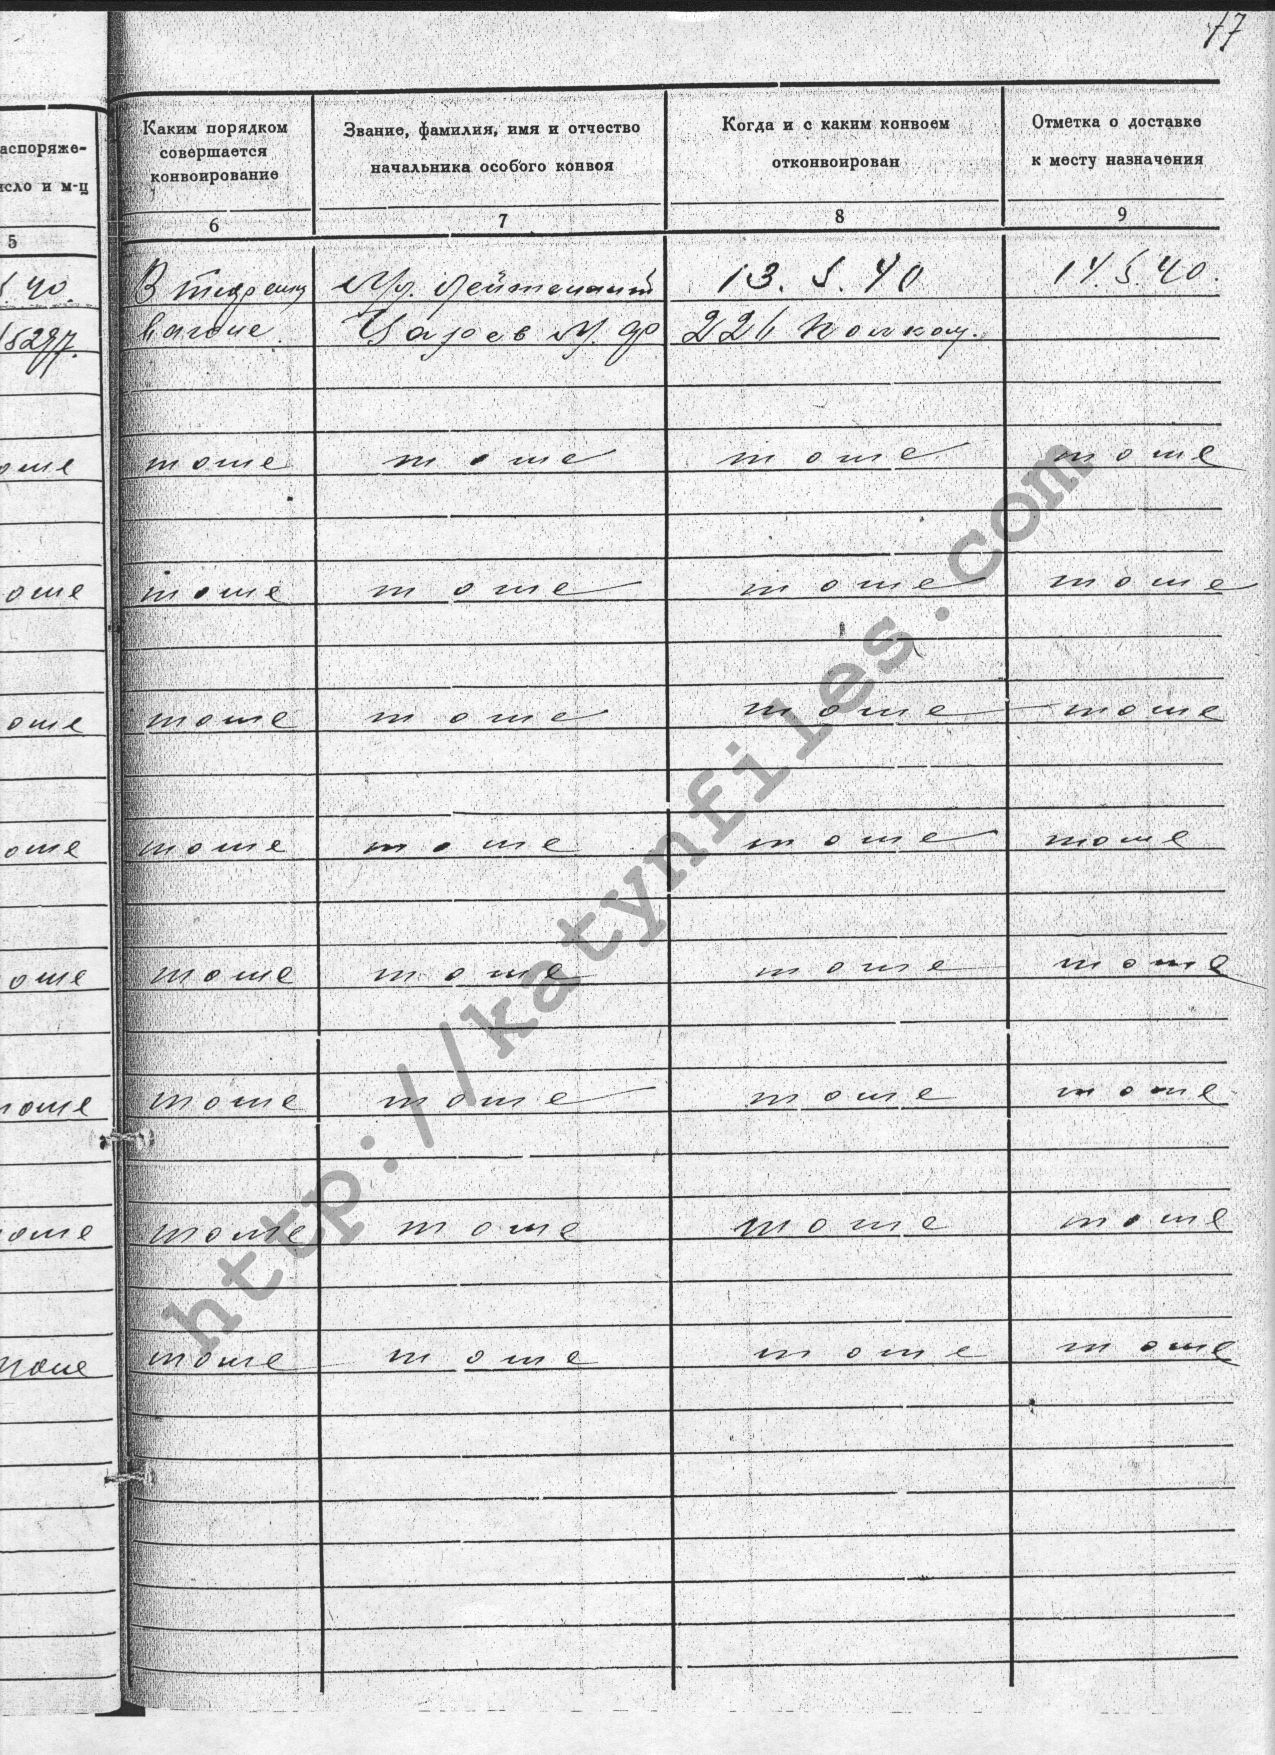 77
аспоряже-
исло и м-ц
5
Каким порядком
совершается
конвоирование
6
Звание, фамилия, имя и отчество
начальника особого конвоя
7
Когда и с каким конвоем
отконвоирован
8
Отметка о доставке
к месту назначения
9
40. В тюремн Мл. лейтенант 13.5.40 14.5.40.
вагоне. Царев М. Ф 226
оже тоже тоже тоже тоже
оже тоже тоже тоже тоже
оже тоже тоже тоже тоже
оже тоже тоже тоже тоже
оже тоже тоже тоже тоже
тоже тоже тоже тоже тоже
оже тоже тоже тоже тоже
тоже тоже тоже тоже тоже
http://katynfiles.com